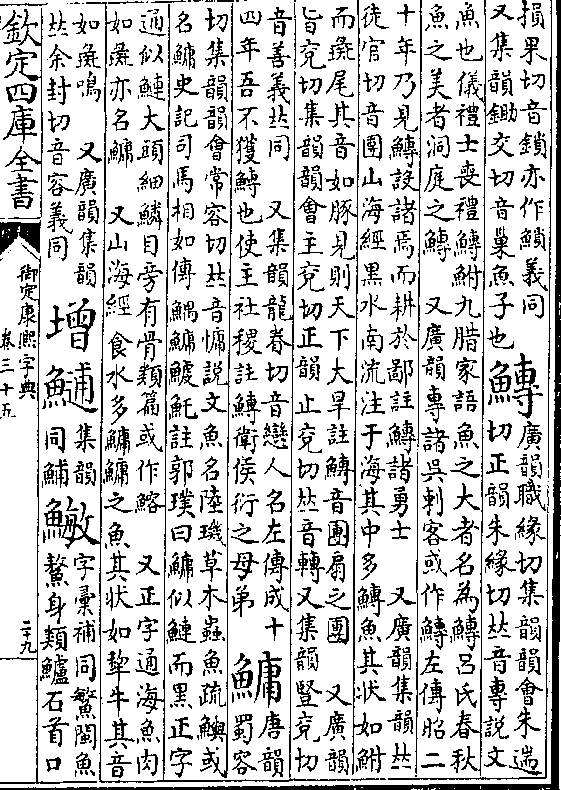 損果切音鎖亦作鎻義同
又集韻鋤交切音巢魚子也 鱄 廣韻職緣切集韻韻會朱遄
切正韻朱緣切𠀤音專說文
魚也儀禮士喪禮鱄鮒九腊家語魚之大者名為鱄呂氏春秋
魚之美者洞庭之鱄 又廣韻專諸吳刺客或作鱄左傳昭二
十年乃見鱄設諸焉而耕於鄙註鱄諸勇士 又廣韻集韻𠀤
徒官切音團山海經黑水南流注于海其中多鱄魚其狀如鮒
而彘尾其音如豚見則天下大旱註鱄音團扇之團 又廣韻
旨兗切集韻韻會主兗切正韻止兗切𠀤音轉又集韻豎兗切
音善義𠀤同 又集韻龍眷切音戀人名左傳成十
四年吾不獲鱄也使主社稷註鱄衛侯衍之母弟 鱅 唐韻
蜀容
切集韻韻會常容切𠀤音慵說文魚名陸璣草木蟲魚疏鱮或
名鱅史記司馬相如傳鰅鱅鰬魠註郭璞曰鱅似鰱而黑正字
通似鰱大頭細鱗目旁有骨類篇或作鰫 又正字通海魚肉
如彘亦名鱅 又山海經食水多鱅鱅之魚其狀如犂牛其音
如彘鳴 又廣韻集韻
𠀤余封切音容義同 增 䲕 集韻
同鯆 𩻠 字彙補同鰵閩魚
鰲身類鱸石首口
欽定四庫全書
御定康熙字典
卷三十五
二十九